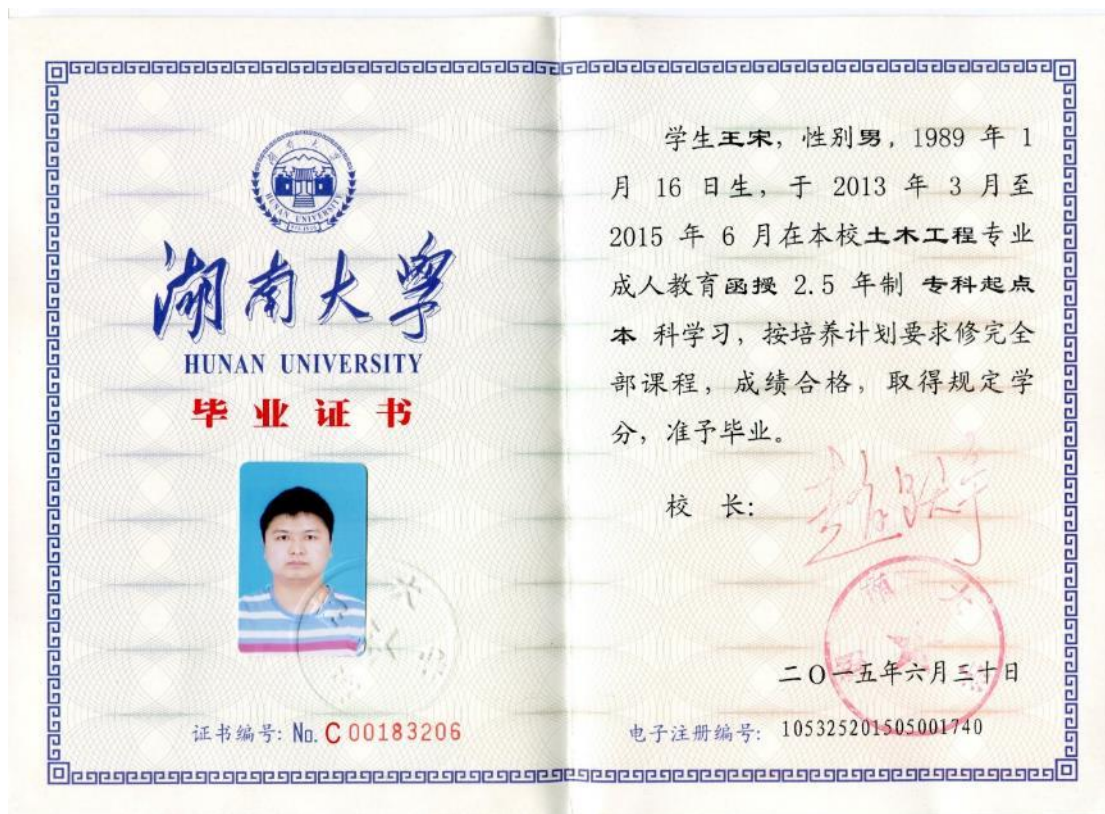 湖南大学
HUNAN UNIVERSITY
湖南大学
HUNAN UNIVERSITY
毕业证书
证书编号: No. C 00183206
学生王宋，性别男，1989 年 1
月 16 日生，于 2013 年 3 月至
2015 年 6 月在本校土木工程专业
成人教育函授 2.5 年制 专科起点
本 科学习，按培养计划要求修完全
部课程，成绩合格，取得规定学
分，准予毕业。
校 长:
二〇一五年六月三十日
电子注册编号: 105325201505001740